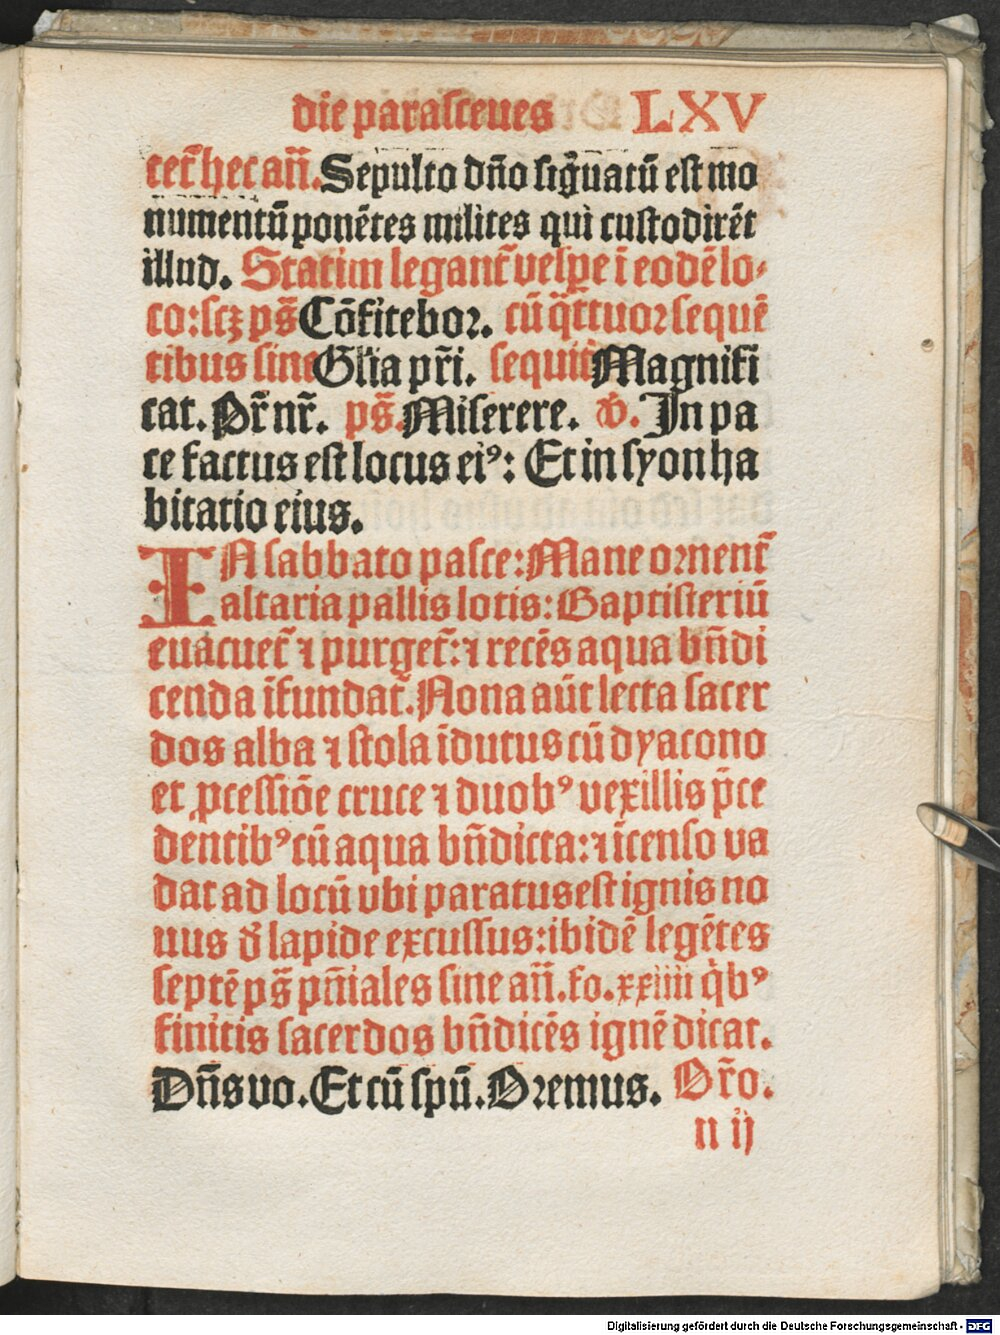 die parasceues LXV
cet᷑ hec an̄. Sepulto dn̄o sigͣnatū est mo
numentū ponētes milites qui custodirēt
illud. Statim legant᷑ vesꝑe ī eodē lo⸗
co: scꝫ ps̄ Cōfitebor. cū qͣttuor sequē
tibus sine Gl̄ia pr̄i. Magnifi
cat. Pr̄ nr̄. ps̄. Miserere. ꝟ. In pa
ce factus est locus eiꝰ: Et in syon ha
bitatio eius.
IN sabbato pasce: Mane ornent᷑
altaria pallis lotis: Baptisteriū
euacuet᷑ ⁊ purget᷑: ⁊ recēs aqua bn̄di
cenda īfundat᷑. Nona aūt lecta sacer
dos alba ⁊ stola īdutus cū dyacono
et ꝓcessiōe cruce ⁊ duobꝰ vexillis p̄ce
dentibꝰ cū aqua bn̄dicta: ⁊ īcenso va
dat ad locū vbi paratus est ignis no
uus đ lapide excussus: ibidē legētes
septē ps̄ pn̄iales sine an̄. fo. xxiiii qͥbꝰ
finitis sacerdos bn̄dicēs ignē dicat.
Dn̄s vo. Et cū spū. Oremus. Or̄o.
n ij